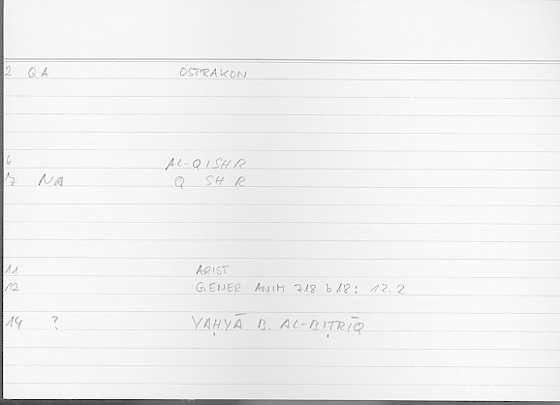 2 QA OSTRAKON
6 AL-QISHR
7 NA Q SH R
11 ARIST
12 GENER ANIM 718 b 18: 12.2
14 ? YAḤYĀ B. AL-BIṬRĪQ